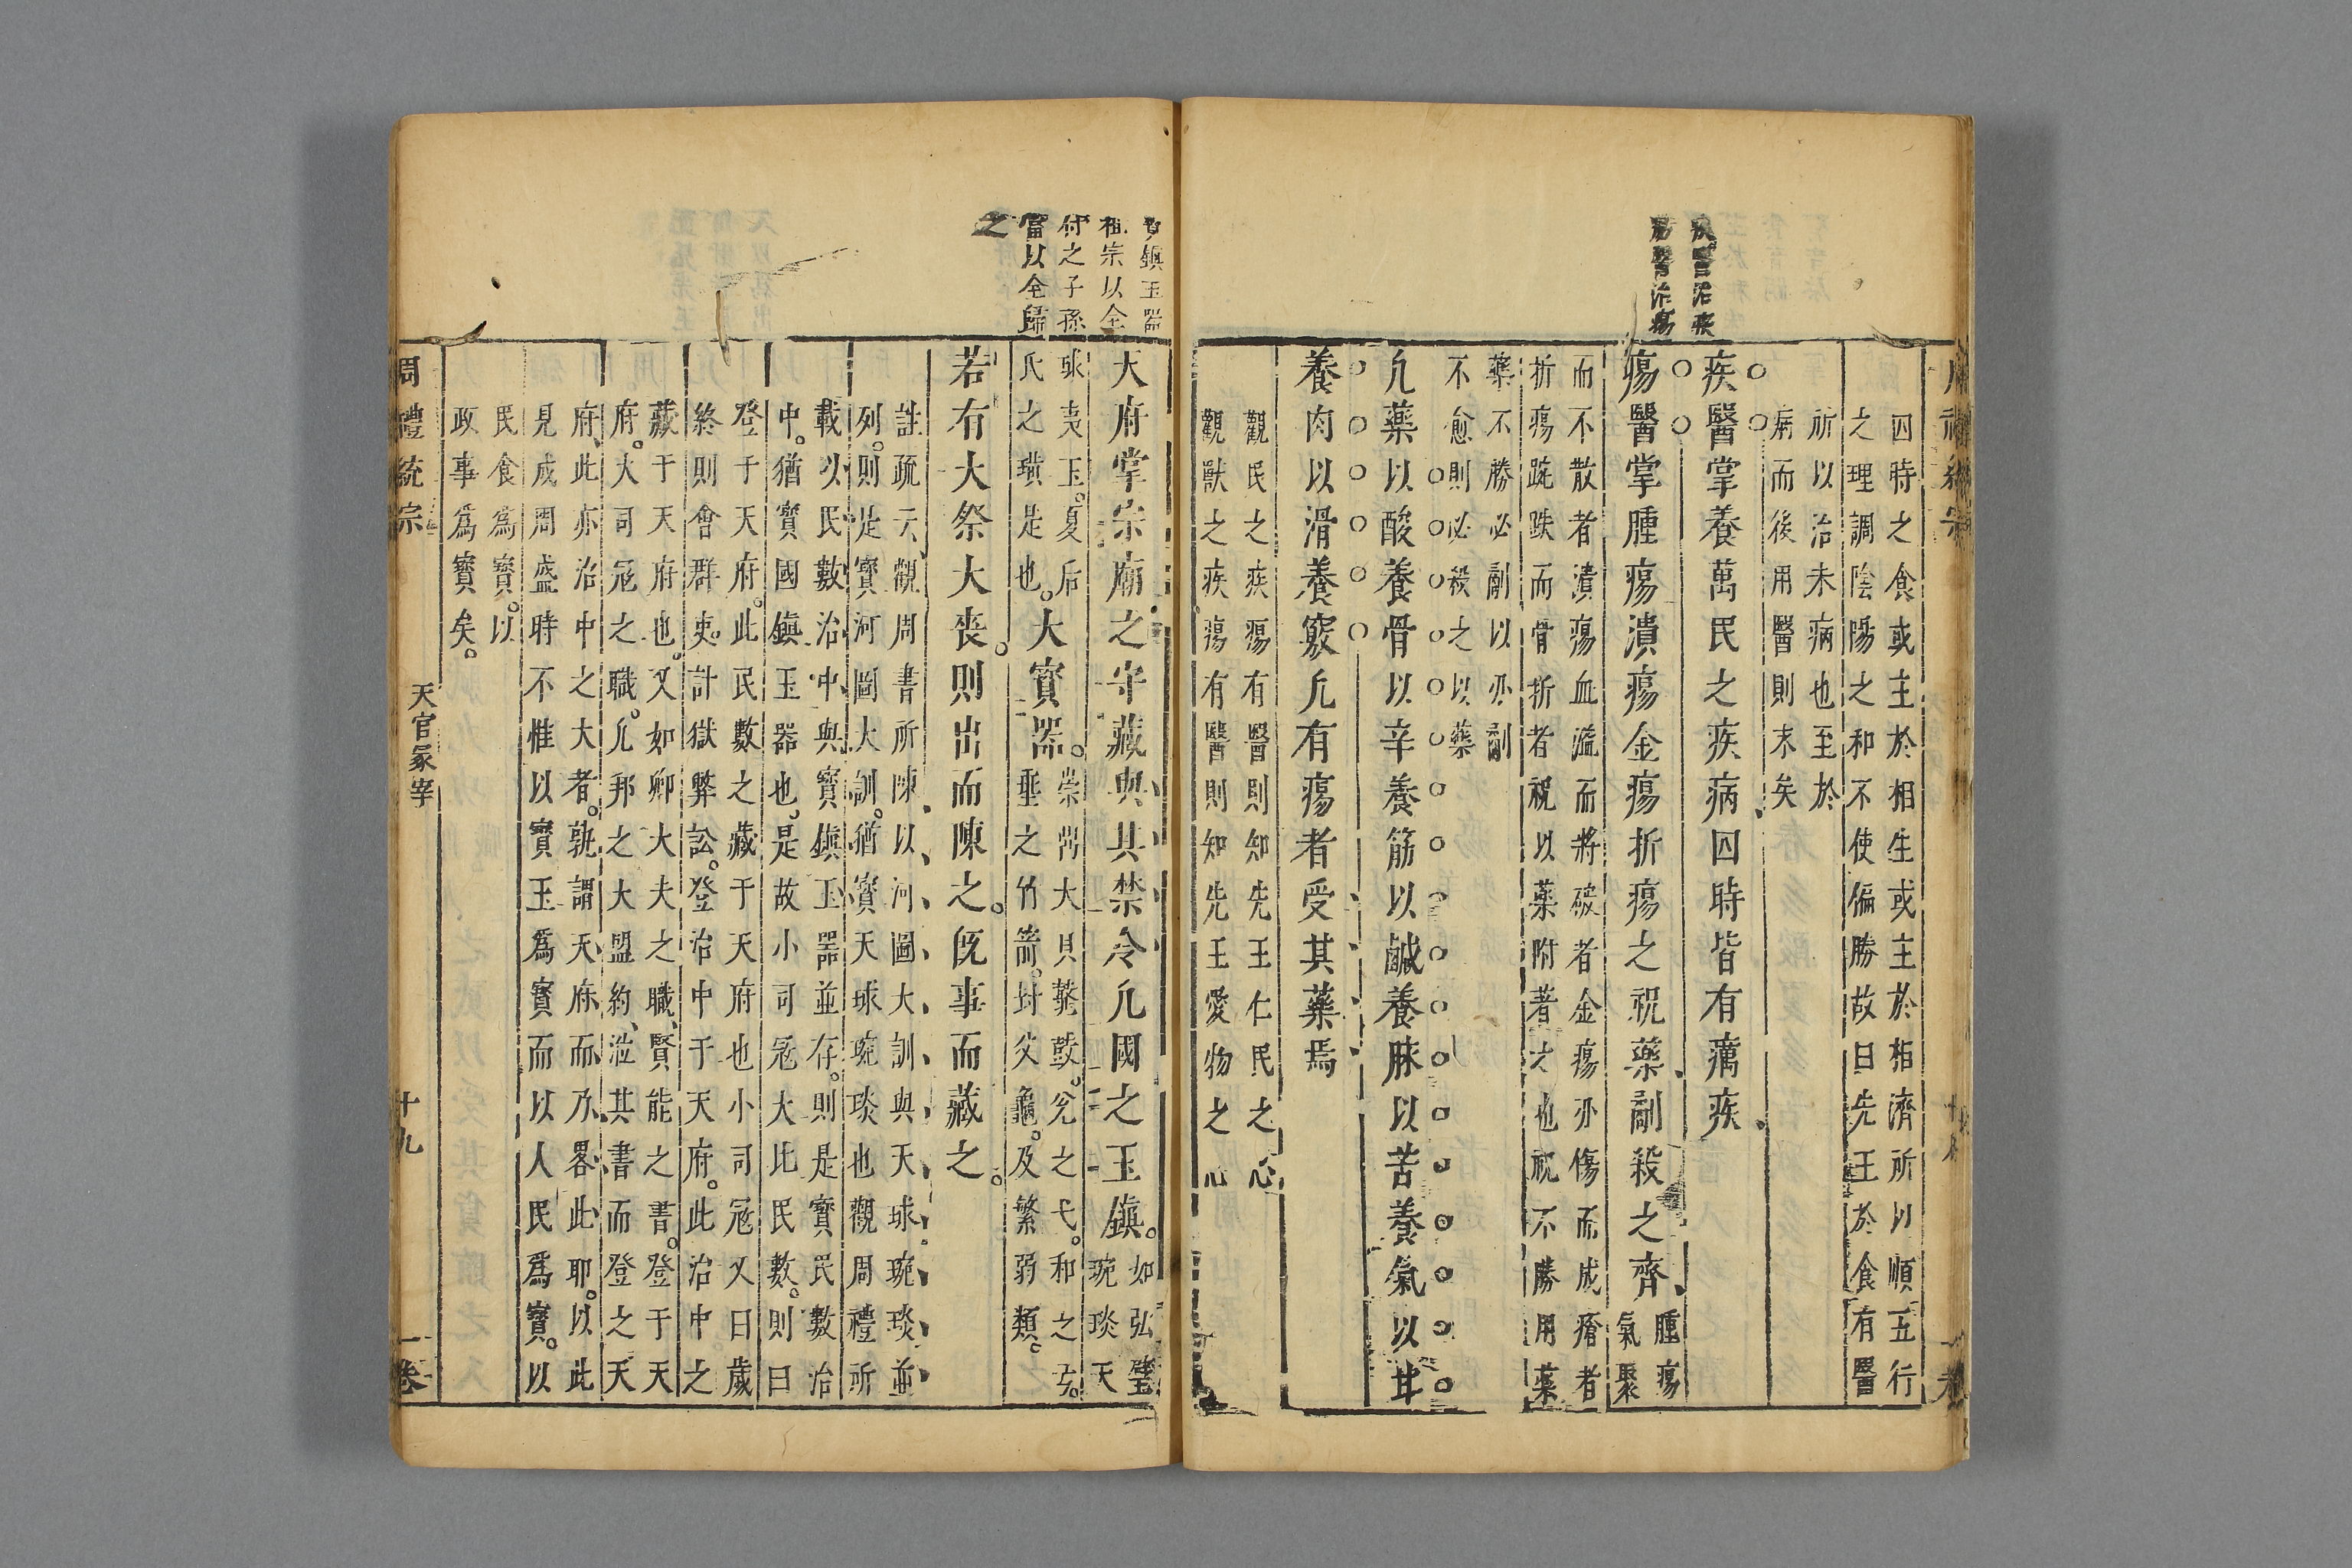 因時之食或主於相生或主於相濟所以順五行
之理調陰陽之和不使偏勝故曰先王於食有醫
所以治未病也至於
病而後用醫則末矣
疾醫治疾
瘍醫治瘍
疾醫掌養萬民之疾病因時皆有癘疾
瘍醫掌腫瘍潰瘍金瘍折瘍之祝藥劀殺之齊
腫瘍
氣聚
而不散者潰瘍血溢而將破者金瘍刅傷而成瘡者
折瘍踠跌而骨折者祝以藥附著之也祝不勝用藥
藥不勝必劀以刅劀
不愈則必殺之以藥
凢藥以酸養骨以辛養筋以鹹養脉以苦養氣以甘
養肉以滑養竅凢有瘍者受其藥焉
觀民之疾瘍有醫則知先王仁民之心
觀獸之疾瘍有醫則知先王愛物之心
鎮玉器
祖宗以全
付之子孫
當以全歸
之
天府掌宗廟之守藏與其禁令凢國之玉鎮
如弘璧
琬琰天
球夷玉夏后
氏之璜是也
大寳器
崇鼎大貝鼖鼓兊之弋和之弓
垂之竹箭封父龜及繁弱類
若有大祭大喪則出而陳之旣事而藏之
註疏云觀周書所陳以河圖大訓與天球琬琰並
列則是寳河圖大訓猶寳天球琬琰也觀周禮所
載以民數治中與寳鎮玉器並存則是寳民數治
中猶寳國鎮玉器也是故小司冦大比民數則曰
登于天府此民數之藏于天府也小司冦又曰歲
終則會群吏計獄弊訟登治中于天府此治中之
藏于天府也又如鄉大夫之職賢能之書登于天
府大司冦之職凢邦之大盟約涖其書而登之天
府此亦治中之大者孰謂天府而乃畧此耶以此
見成周盛時不惟以寳玉爲寳而以人民爲寳以
民食爲寳以
政事爲寳矣
周禮統宗 天官冡宰 十九 一卷